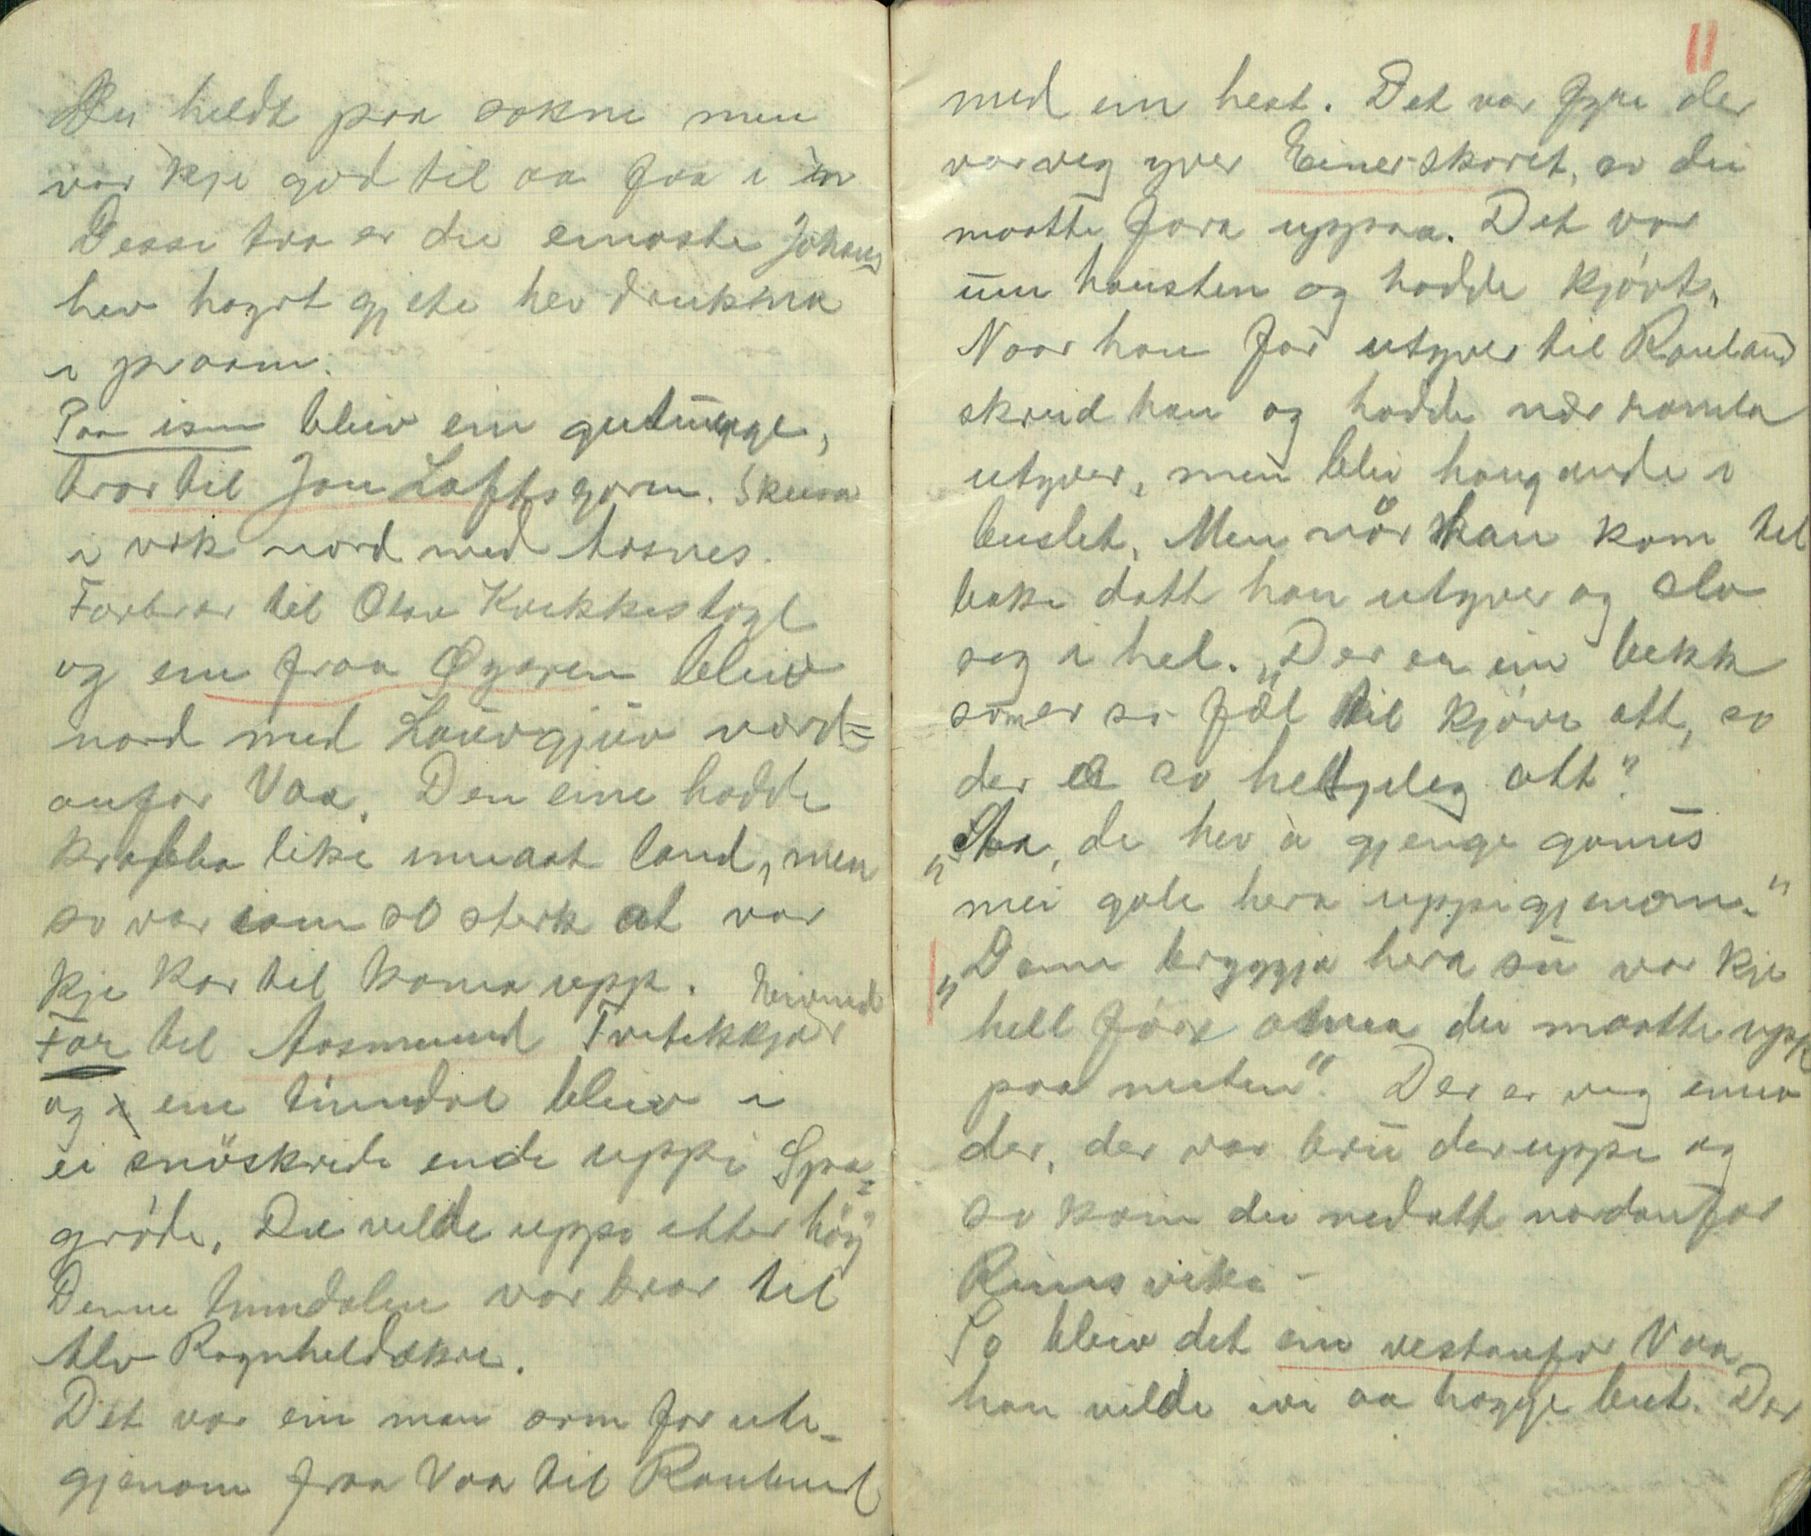 Dei heldt paa sokne men
var kje god til aa faa i 'n
Desse tvo er dei einaste Johans
hev høyrt gjete hev drukkna
i praam.
Paa isen bleiv ein gutunge,
bror til Jon Loftsgarn. Skeisa
i vok nord med Aasnes.
Farbror til Olav Kvikkestøyl
og ein fraa Øygaren bleiv
nord med Lauvgjuv nord=
anfor Vaa. Den eine hadde
krabba like innaat land, men
so var isen so sterk at var
kje kar til koma upp. Eivind
Far til Aasmund Tvitekkjær
og ein tinndøl bleiv i
ei snöskrede ende uppi Spa=
grøde. Dei vilde uppo etter höy
Denne tinndølen var bror til
Alv Ragnheldskås.
Det var ein man som for ute-
gjenom fraa Vaa til Rauland
11
med ein hest. Det var fyre der
var veg yver Einerskaret, so dei
maatte fara uppaa. Det var
um hausten og hadde kjövt.
Naar han for utyver til Rauland
skreid han og hadde nær ramla
utyver, men blei hangande i
beislet. Men når han kom til
bake datt han utyver og slo
seg i hel. "Der er ein bekk
som er so fæl til kjöve att, so
der æ so helgjeleg att".
"Aa, de hev à gjenge gamis
mei gale hera uppigjenom."
"Denne bryggja hera su var kje
hell före otnea dei maatte upp
paa nuten". Der er veg enno
der, der var bru deruppe og
so kom dei nedatt nordanfor
Rinsvika -
So bleiv det ein vestanfor Vaa
han vilde ivi aa hogge beit. Der